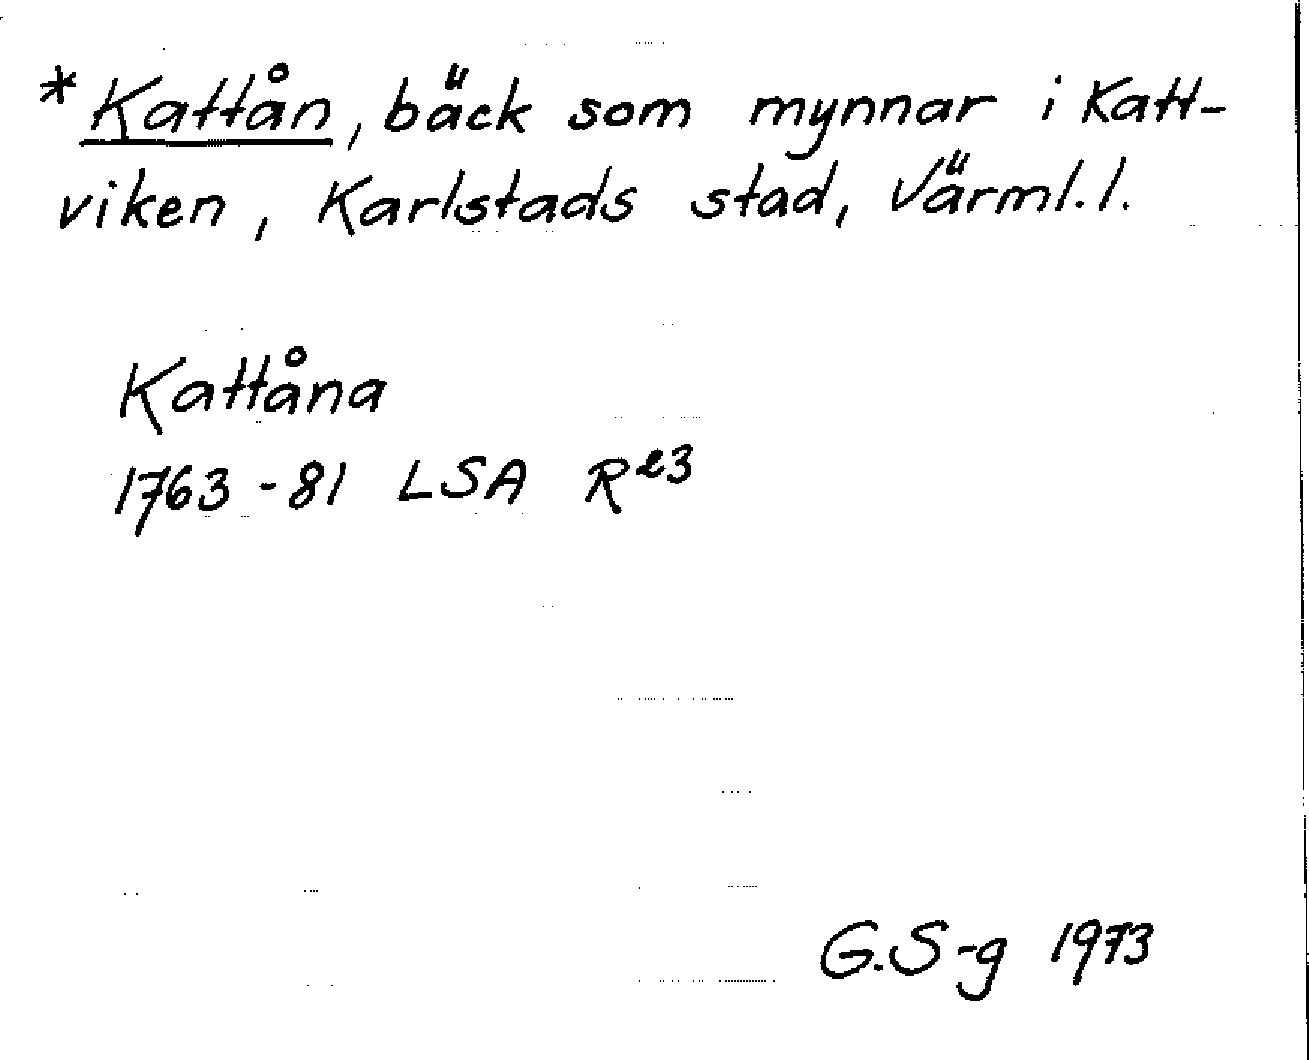 *Kattån, bäck som mynnar i Katt-
viken, Karlstads stad, Värml. l.
Kattåna
1763-81 LSA R23
G.S-g 1973